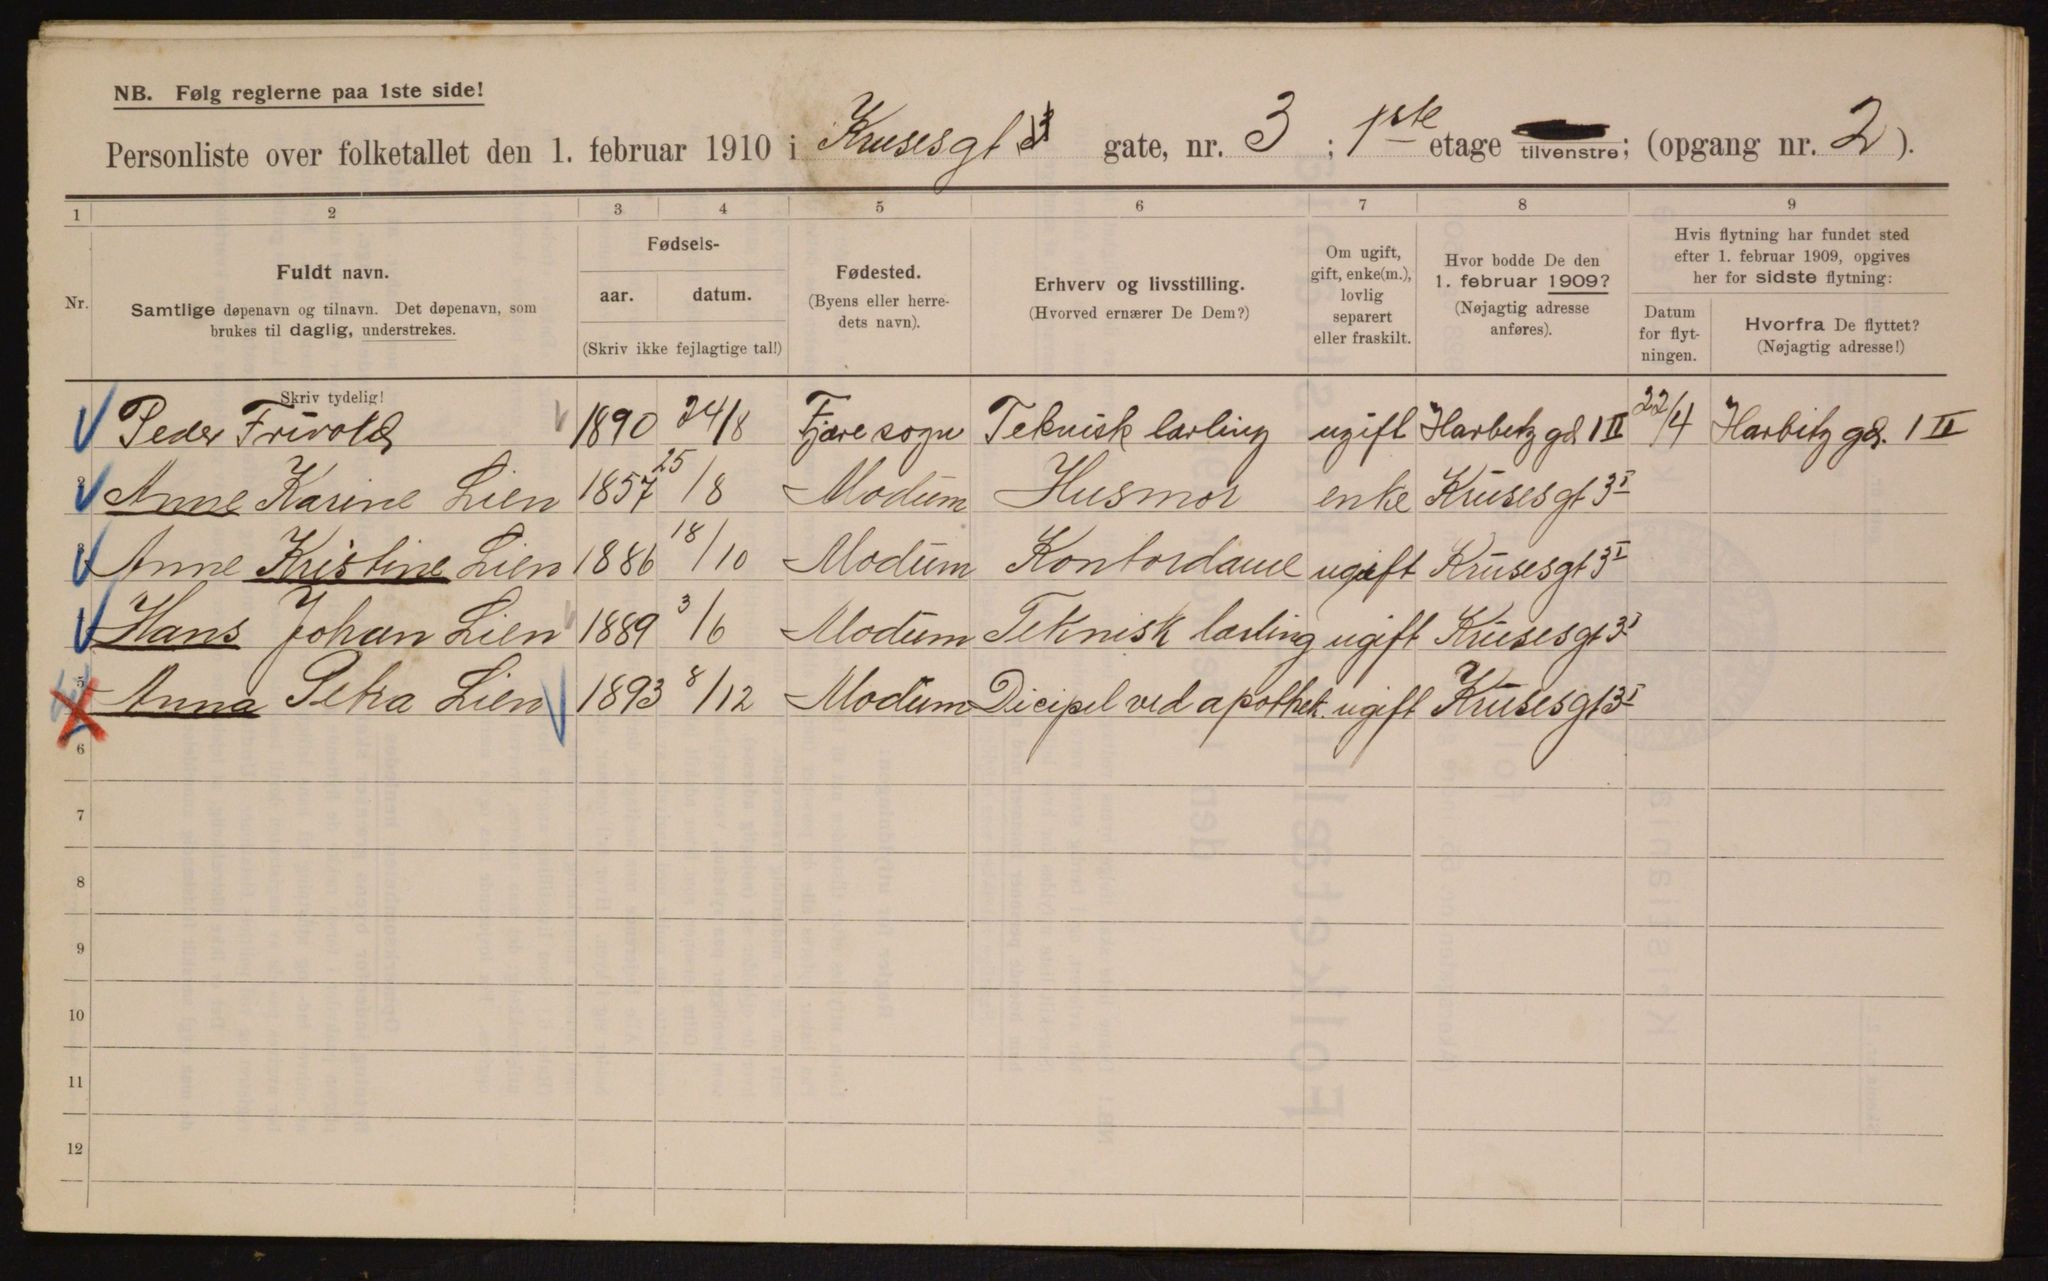 NB. Følg reglerne paa 1ste side!
Personliste over folketallet den 1. februar 1910 i Krusesgt 3 gate, nr. 3 ; 1ste etage tilvenstre; (opgang nr. 2 ).
1 2 3 4 5 6 7 8 9
Nr.
Fuldt navn.
Samtlige døpenavn og tilnavn. Det døpenavn, som
brukes til daglig, understrekes.
Fødsels-
aar. datum.
(Skriv ikke fejlagtige tal!)
Fødested.
(Byens eller herre-
dets navn).
Erhverv og livsstilling.
(Hvorved ernærer De Dem?)
Om ugift,
gift, enke(m.),
lovlig
separert
eller fraskilt.
Hvor bodde De den
1. februar 1909?
(Nøjagtig adresse
anføres).
Hvis flytning har fundet sted
efter 1. februar 1909, opgives
her for sidste flytning:
Datum
for flyt-
ningen.
Hvorfra De flyttet?
(Nøjagtig adresse!)
Skriv tydelig!
Peder Frivold 1890 24/8 Fjære sogn Teknisk lærling ugift Harbitz gd. 1 II 22/4 Harbitz gd. 1 II
2 Anne Karine Lien 1857 25/8 Modum Husmor enke Krusesgt 3 I
3 Anne Kristine Lien 1886 18/10 Modum Kontordame ugift Krusesgt 3 I
Hans Johan Lien 1889 3/6 Modum Teknisk lærling ugift Krusesgt 3 I
5 Anna Petra Lien 1893 8/12 Modum Dicipel ved apothek. ugift Krusesgt 3 I
6
7
8
9
10
11
12